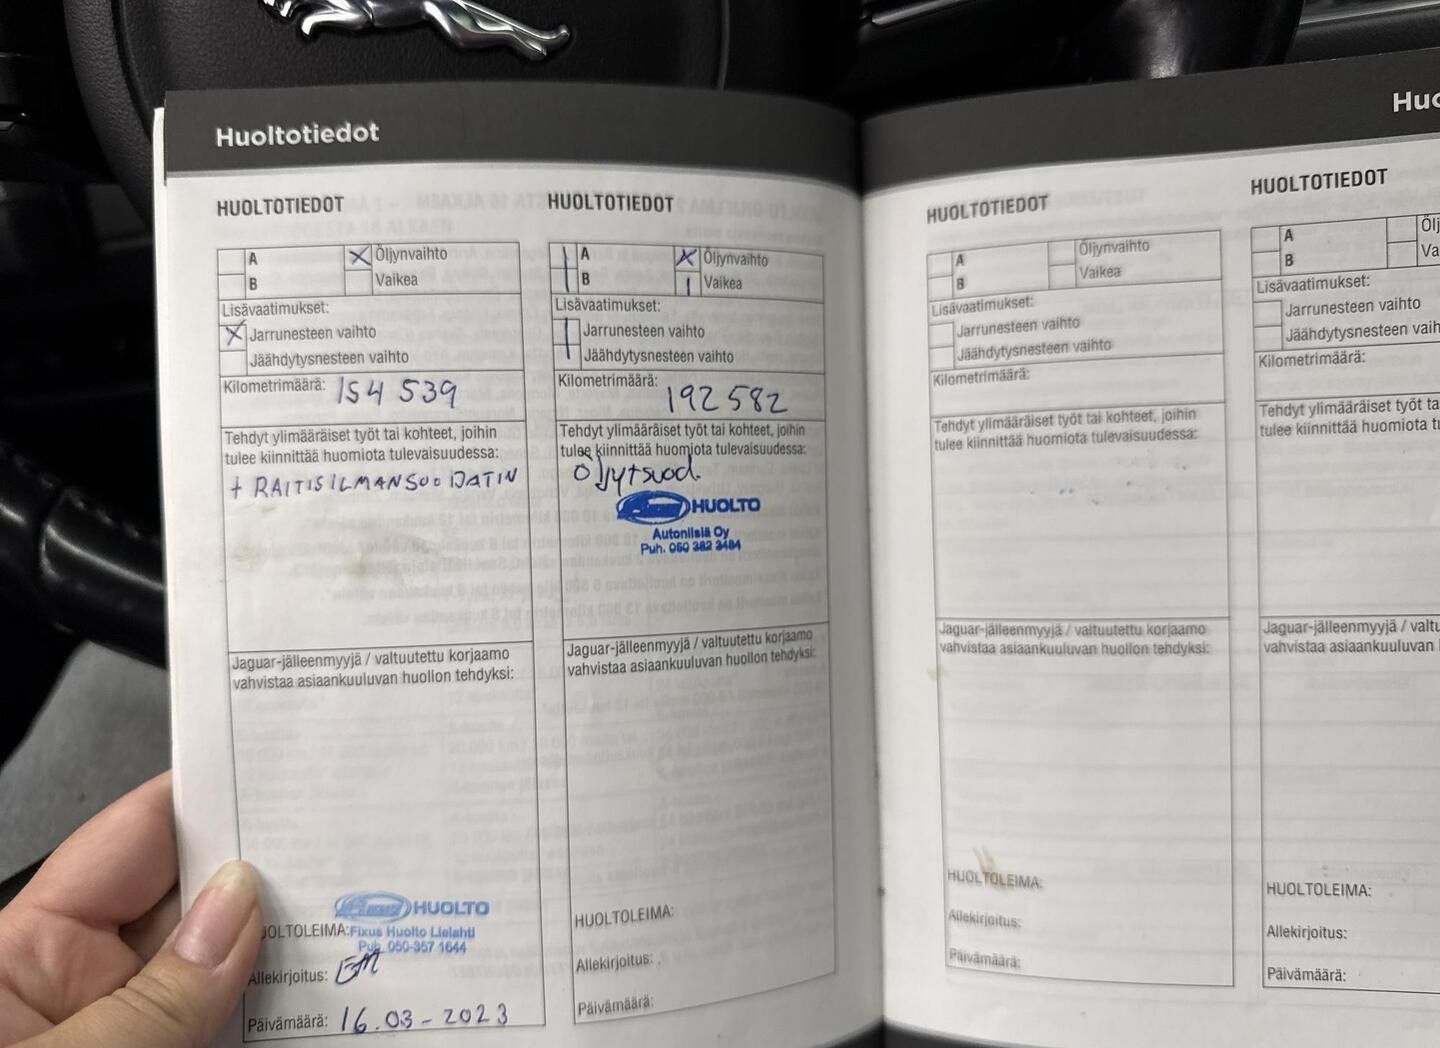 Huoltotiedot
HUOLTOTIEDOT
A
Öljynvaihto
B
Vaikea
Lisävaatimukset:
Jarrunesteen vaihto
Jäähdytysnesteen vaihto
Kilometrimäärä: 154 539
Tehdyt ylimääräiset työt tai kohteet, joihin
tulee kiinnittää huomiota tulevaisuudessa:
+ RAITISILMANSUODATIN
Jaguar-jälleenmyyjä / valtuutettu korjaamo
vahvistaa asiaankuuluvan huollon tehdyksi:
HUOLTO
OLTOLEIMA: Fixus Huolto Lielahti
Puh. 050-357 1644
Allekirjoitus:
Päivämäärä: 16.03-2023
HUOLTOTIEDOT
A
Öljynvaihto
B
Vaikea
Lisävaatimukset:
Jarrunesteen vaihto
Jäähdytysnesteen vaihto
Kilometrimäärä: 192 582
Tehdyt ylimääräiset työt tai kohteet, joihin
tulee kiinnittää huomiota tulevaisuudessa:
Öljytsuod.
HUOLTO
Autoniisiä Oy
Puh. 050 382 3484
Jaguar-jälleenmyyjä / valtuutettu korjaamo
vahvistaa asiaankuuluvan huollon tehdyksi:
HUOLTOLEIMA:
Allekirjoitus:
Päivämäärä:
Huo
HUOLTOTIEDOT
A
Öljynvaihto
B
Vaikea
Lisävaatimukset:
Jarrunesteen vaihto
Jäähdytysnesteen vaihto
Kilometrimäärä:
Tehdyt ylimääräiset työt tai kohteet, joihin
tulee kiinnittää huomiota tulevaisuudessa:
Jaguar-jälleenmyyjä / valtuutettu korjaamo
vahvistaa asiaankuuluvan huollon tehdyksi:
HUOLTOLEIMA:
Allekirjoitus:
Päivämäärä:
HUOLTOTIEDOT
A
Ölj
B
Va
Lisävaatimukset:
Jarrunesteen vaihto
Jäähdytysnesteen vaiht
Kilometrimäärä:
Tehdyt ylimääräiset työt ta
tulee kiinnittää huomiota t
Jaguar-jälleenmyyjä / valtu
vahvistaa asiaankuuluvan
HUOLTOLEIMA:
Allekirjoitus:
Päivämäärä: